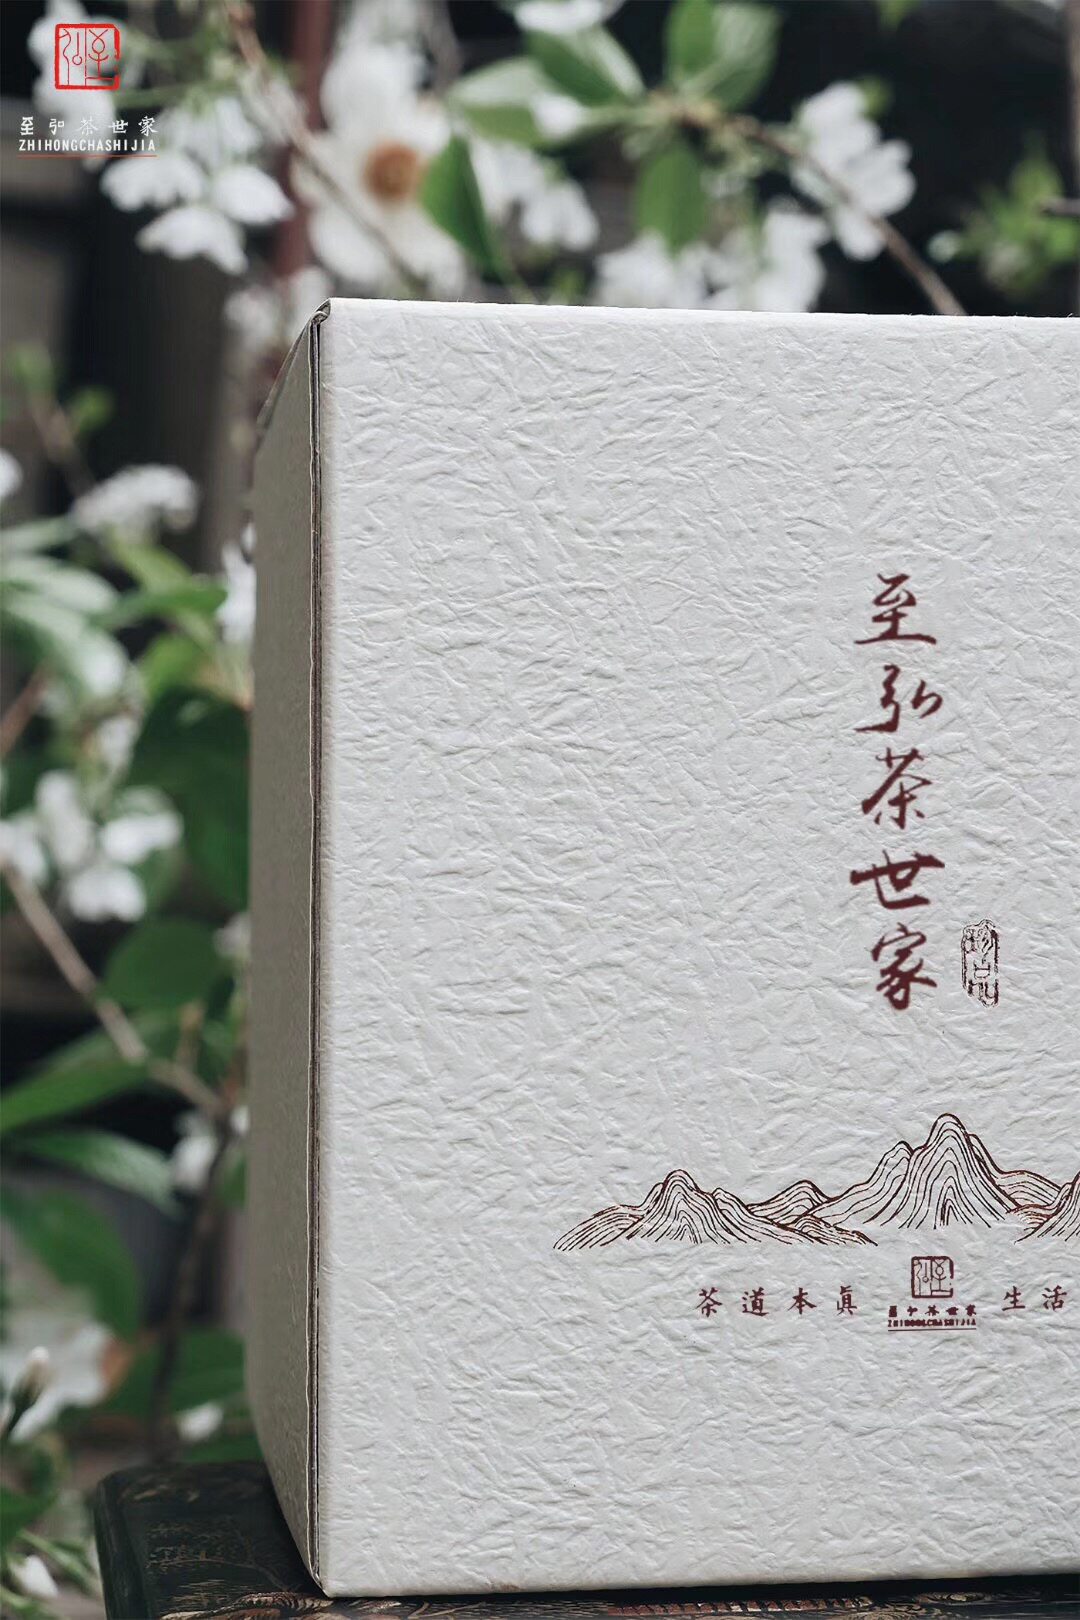 至弘茶世家
ZHIHONGCHASHIJIA
至弘茶世家
珍品
茶道本真
至弘茶世家
ZHIHONGCHASHIJIA
生活